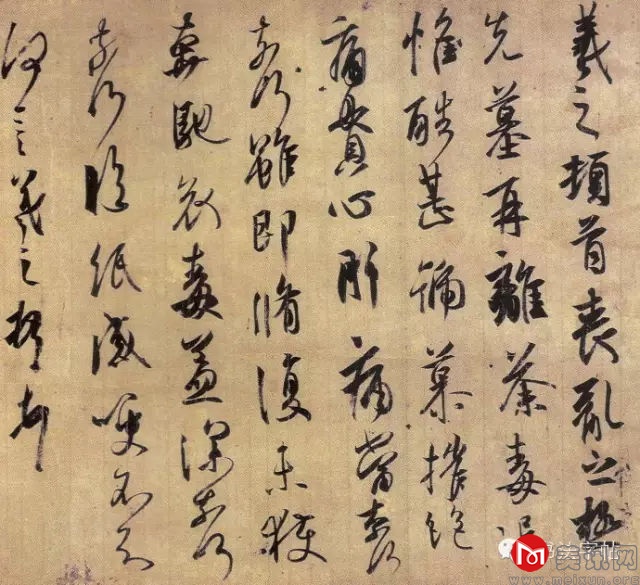 羲之頓首喪亂之極
先墓再離荼毒追
惟酷甚號慕摧絕
痛貫心肝痛當奈何
奈何雖即脩復未獲
奔馳哀毒益深奈何
奈何臨紙感哽不知
何言羲之頓首
美讯网
www.meixun